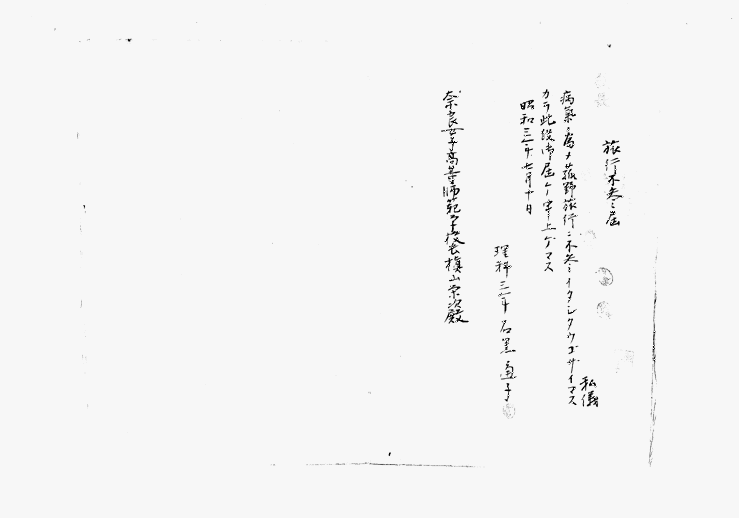 旅行不参届
私儀
病氣ノ為メ菰野旅行ニ不参イタシタウゴザイマス
カラ此段御届ケ申上ゲマス
昭和三年七月十日
理科三年 石黒
奈良女子高等師範学校長槇山栄次殿